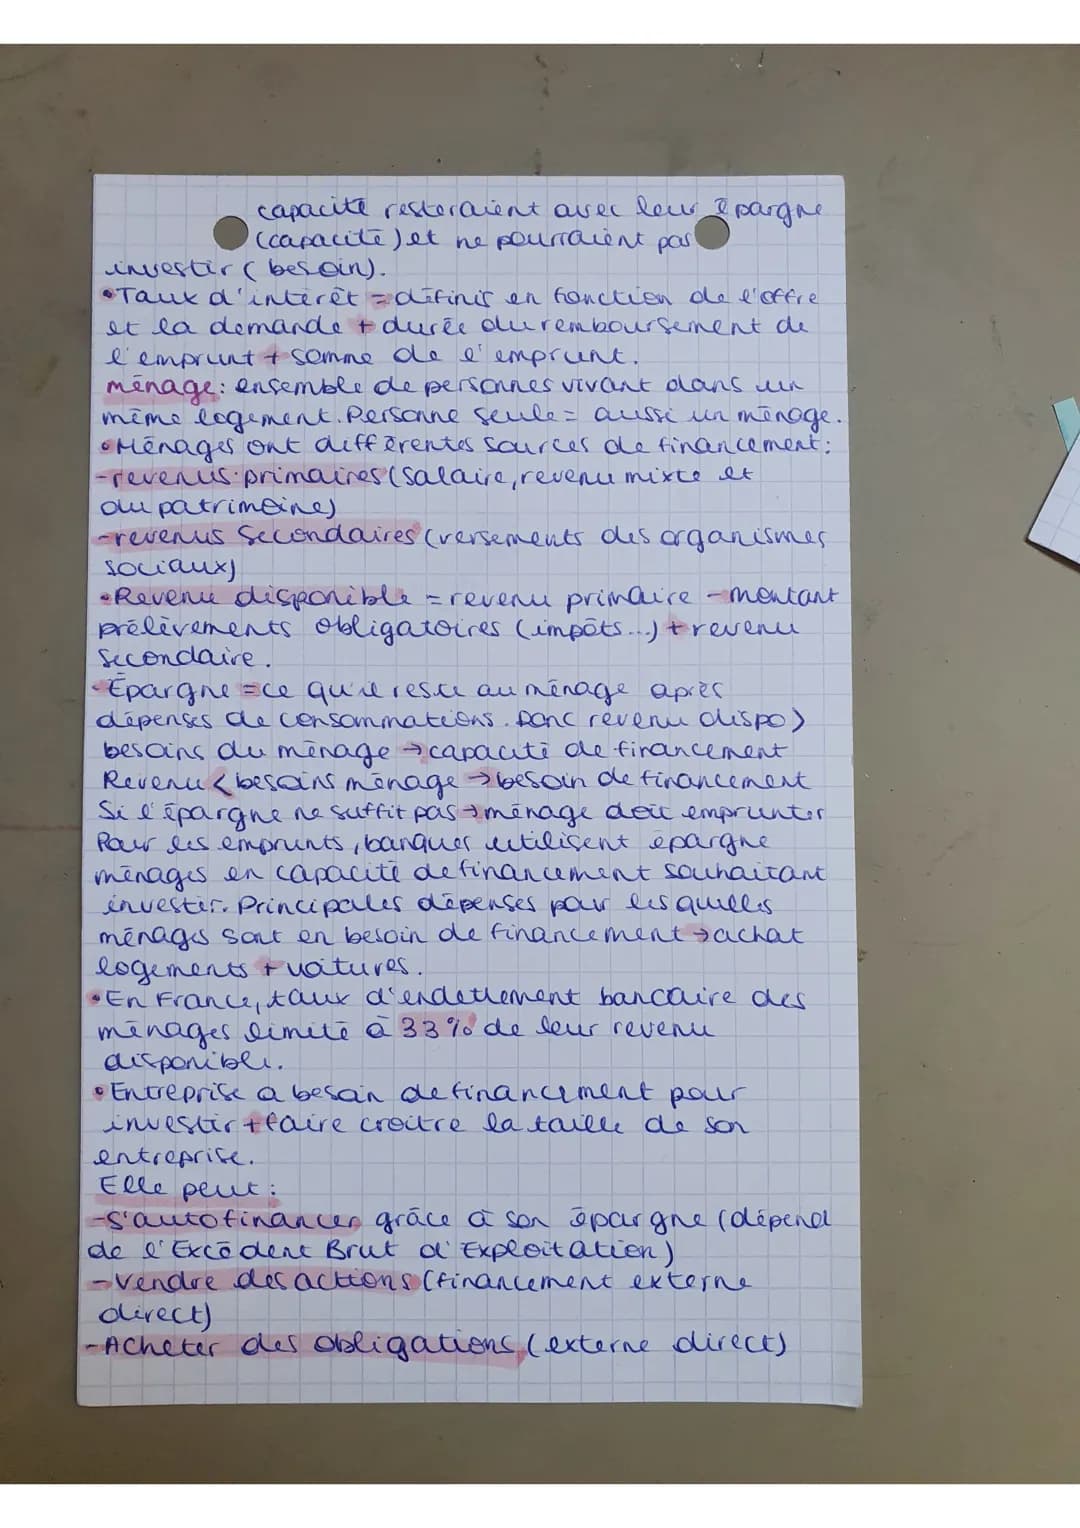 capacité resteraient avec leur épargne
(capacité) et ne pourraient pas
investir (besoin).
•Taux d'intérêt = définis en fonction de l'offre
et la demande + durée du remboursement de
l'emprunt + somme de l'emprunt.
ménage: ensemble de personnes vivant dans un
même logement. Personne seule = aussi un ménage.
•Ménages ont différentes sources de financement:
-revenus primaires (salaire, revenu mixte et
du patrimoine)
-revenus secondaires (versements des organismes
sociaux)
•Revenu disponible = revenu primaire - montant
prélèvements obligatoires (impôts...) + revenu
secondaire.
•Épargne = ce qu'il reste au ménage après
dépenses de consommations. Donc revenu dispo >
besoins du ménage → capacité de financement
Revenu < besoins ménage → besoin de financement
Si l'épargne ne suffit pas → ménage doit emprunter
Pour les emprunts, banques utilisent épargne
ménages en capacité de financement souhaitant
investir. Principales dépenses pour lesquelles
ménages sont en besoin de financement → achat
logements + voitures.
•En France, taux d'endettement bancaire des
ménages limité à 33% de leur revenu
disponible.
•Entreprise a besoin de financement pour
investir + faire croître la taille de son
entreprise.
Elle peut :
-S'autofinancer grâce à son épargne (dépend
de l'Excédent Brut d'Exploitation)
-Vendre des actions (financement externe
direct)
-Acheter des obligations (externe direct)